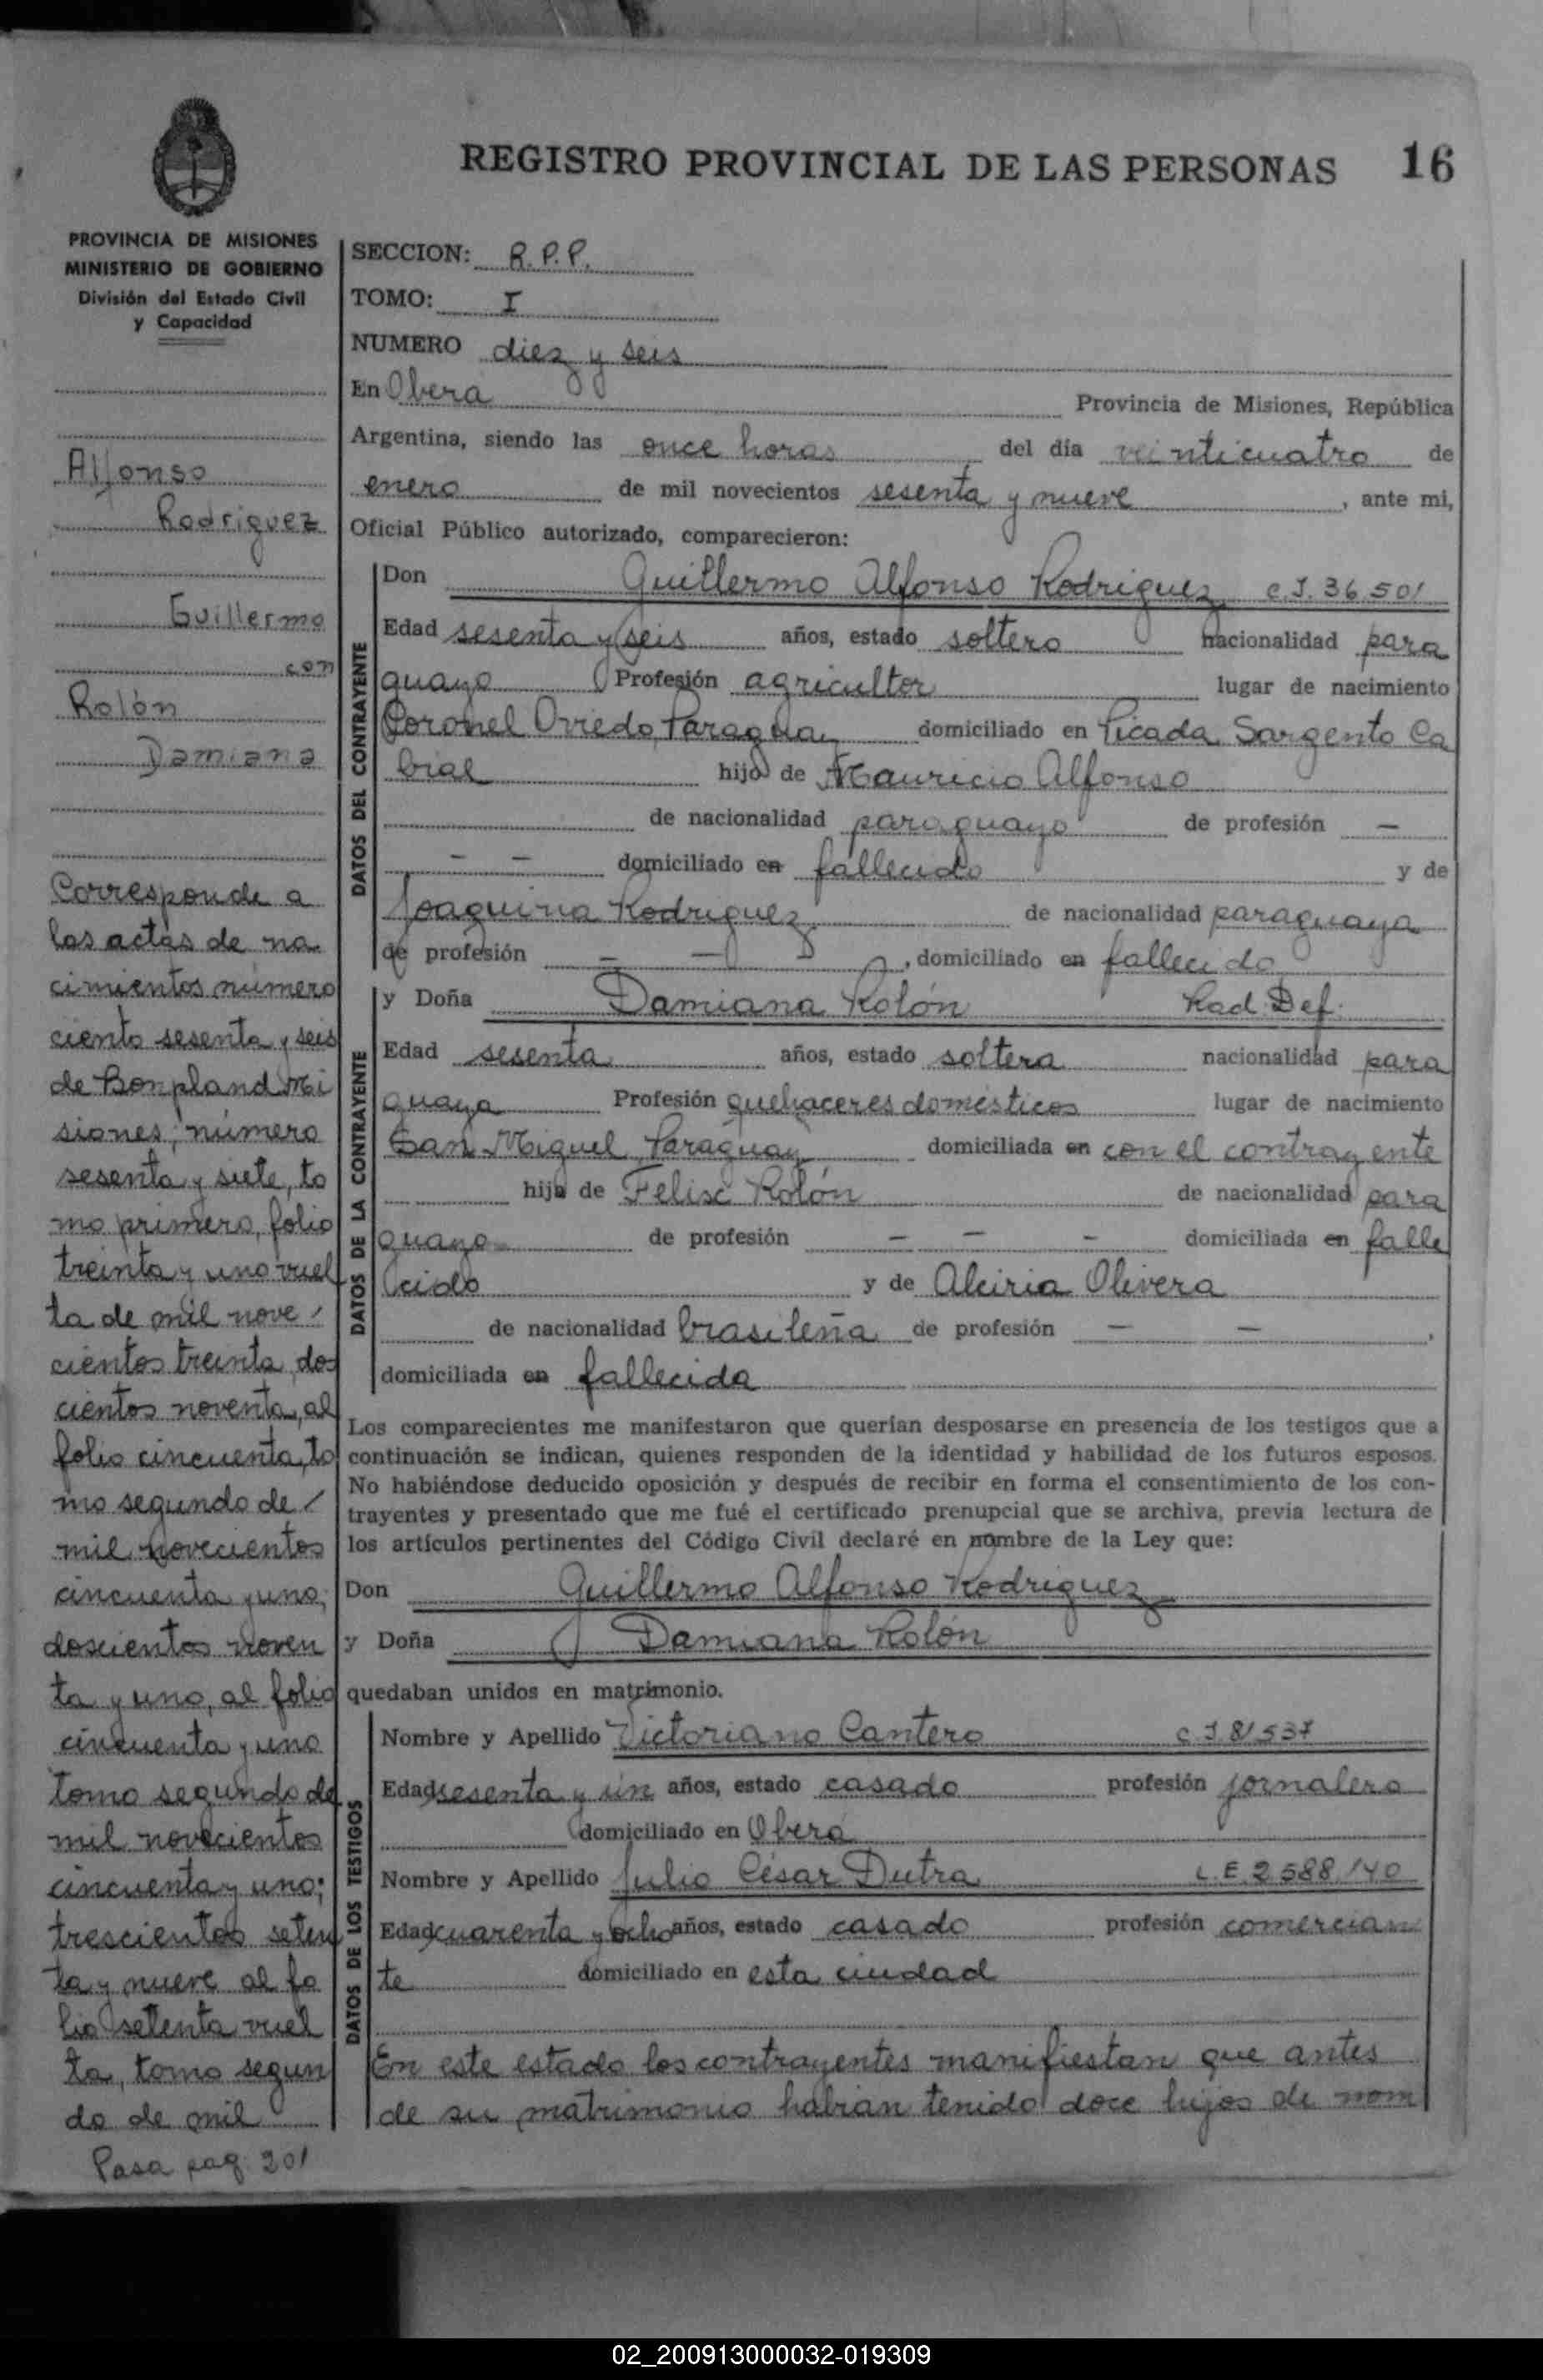 REGISTRO PROVINCIAL DE LAS PERSONAS 16
PROVINCIA DE MISIONES
MINISTERIO DE GOBIERNO
División del Estado Civil
y Capacidad
Alfonso
Rodriguez
Guillermo
con
Rolón
Damiana
Corresponde a
las actas de na
cimientos número
ciento sesenta y seis
de Bonpland Mi
siones, número
sesenta y siete, to
mo primero, folio
treinta y uno vuel
ta de mil nove
cientos treinta, dos
cientos noventa, al
folio cincuenta, to
mo segundo de
mil novecientos
cincuenta y uno;
doscientos noven
ta y uno, al folio
cincuenta y uno
tomo segundo de
mil novecientos
cincuenta y uno;
trescientos seten
ta y nueve al fo
lio setenta vuel
ta, tomo segun
do de mil
Pasa pag. 201
SECCION: R.P.P.
TOMO: I
NUMERO diez y seis
En Oberá Provincia de Misiones, República
Argentina, siendo las once horas del día veinticuatro de
enero de mil novecientos sesenta y nueve, ante mi,
Oficial Público autorizado, comparecieron:
DATOS DEL CONTRAYENTE
Don Guillermo Alfonso Rodriguez C.I. 36.501
Edad sesenta y seis años, estado soltero nacionalidad para
guayo Profesión agricultor lugar de nacimiento
Coronel Oviedo, Paraguay domiciliado en Picada Sargento Ca
bral hijo de Mauricio Alfonso
de nacionalidad paraguayo de profesión –
– – domiciliado en fallecido y de
Joaquina Rodriguez de nacionalidad paraguaya
de profesión – –, domiciliado en fallecido
DATOS DE LA CONTRAYENTE
y Doña Damiana Rolón Rad. Def.
Edad sesenta años, estado soltera nacionalidad para
guaya Profesión quehaceres domésticos lugar de nacimiento
San Miguel, Paraguay domiciliada en con el contrayente
hija de Rolón de nacionalidad para
guayo de profesión – – – domiciliada en falle
cido y de Alciria Olivera
de nacionalidad brasileña de profesión – –
domiciliada en fallecida
Los comparecientes me manifestaron que querían desposarse en presencia de los testigos que a
continuación se indican, quienes responden de la identidad y habilidad de los futuros esposos.
No habiéndose deducido oposición y después de recibir en forma el consentimiento de los con-
trayentes y presentado que me fué el certificado prenupcial que se archiva, previa lectura de
los artículos pertinentes del Código Civil declaré en nombre de la Ley que:
Don Guillermo Alfonso Rodriguez
y Doña Damiana Rolón
quedaban unidos en matrimonio.
DATOS DE LOS TESTIGOS
Nombre y Apellido Victoriano Cantero C.I. 81537
Edad sesenta y un años, estado casado profesión jornalero
domiciliado en Oberá
Nombre y Apellido Julio César Dutra L.E. 2.588.140
Edad cuarenta y ocho años, estado casado profesión comercian
te domiciliado en esta ciudad
En este estado los contrayentes manifiestan que antes
de su matrimonio habian tenido doce hijos de nom
02_200913000032-019309